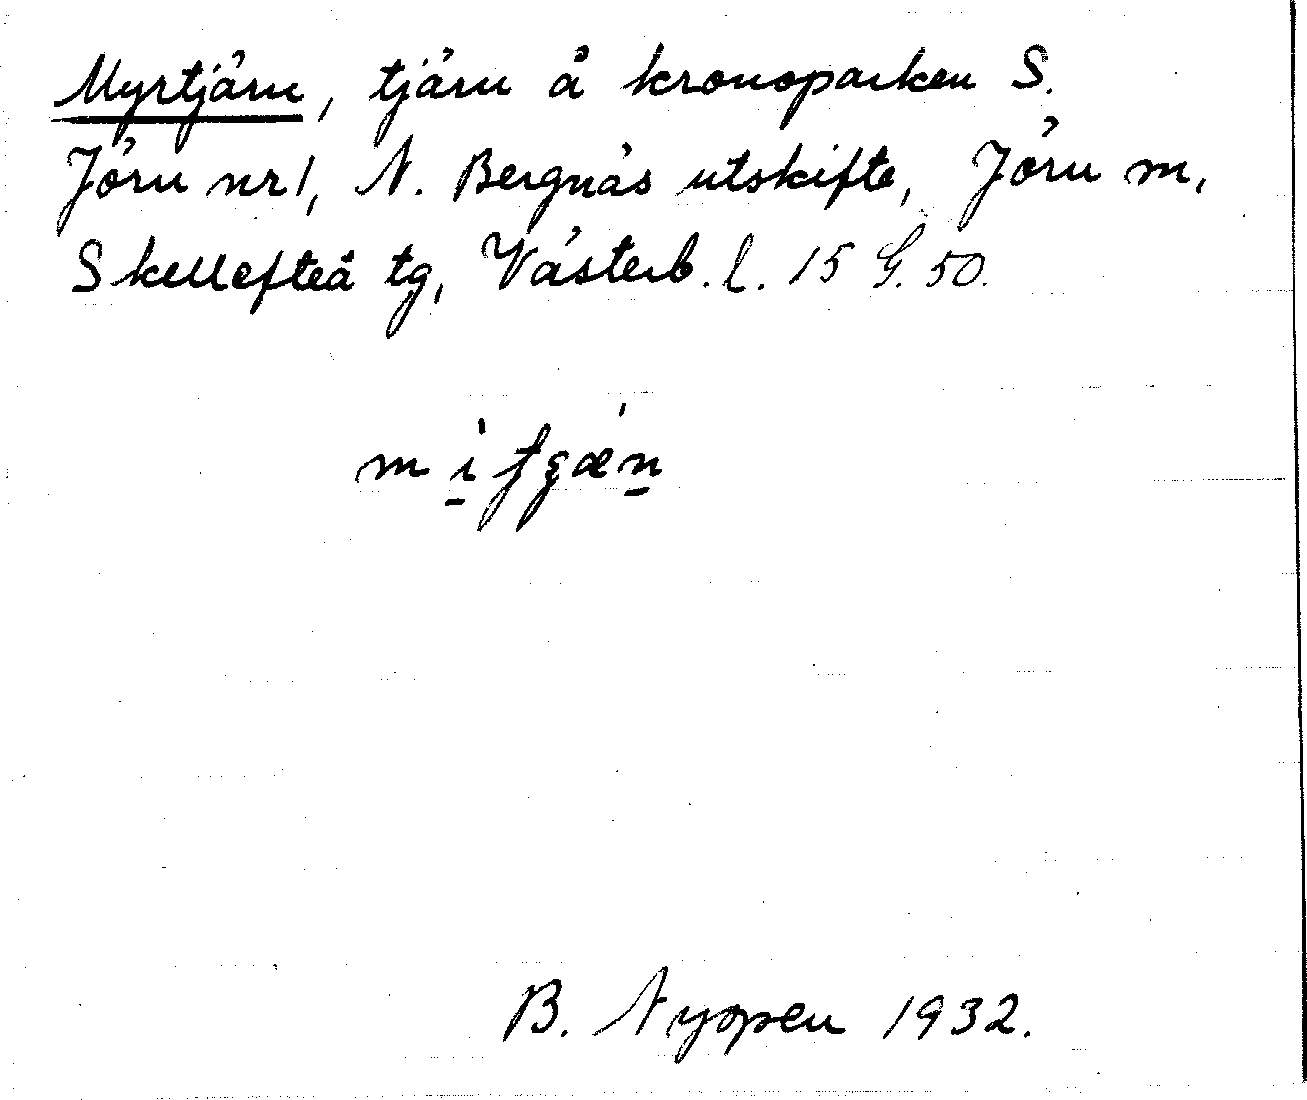 Myrtjärn, tjärn å kronoparken S.
Jörn nr 1, N. Bergnäs utskifte, Jörn m,
Skellefteå tg, Västerb. l. 15 G. 50.
B. Nyopen 1932.